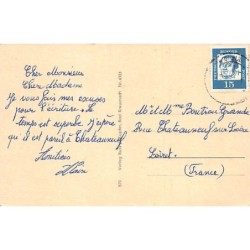 Cher Monsieur
Chère Madame
Je vous fais mes excuses
pour l'écriture. Le
temps est superbe j'espère
qu'il est pareil à Chateauneuf
Amitiés
M et Mme Boutron Grande
Rue Chateauneuf sur Loire
Loiret
(France)
15